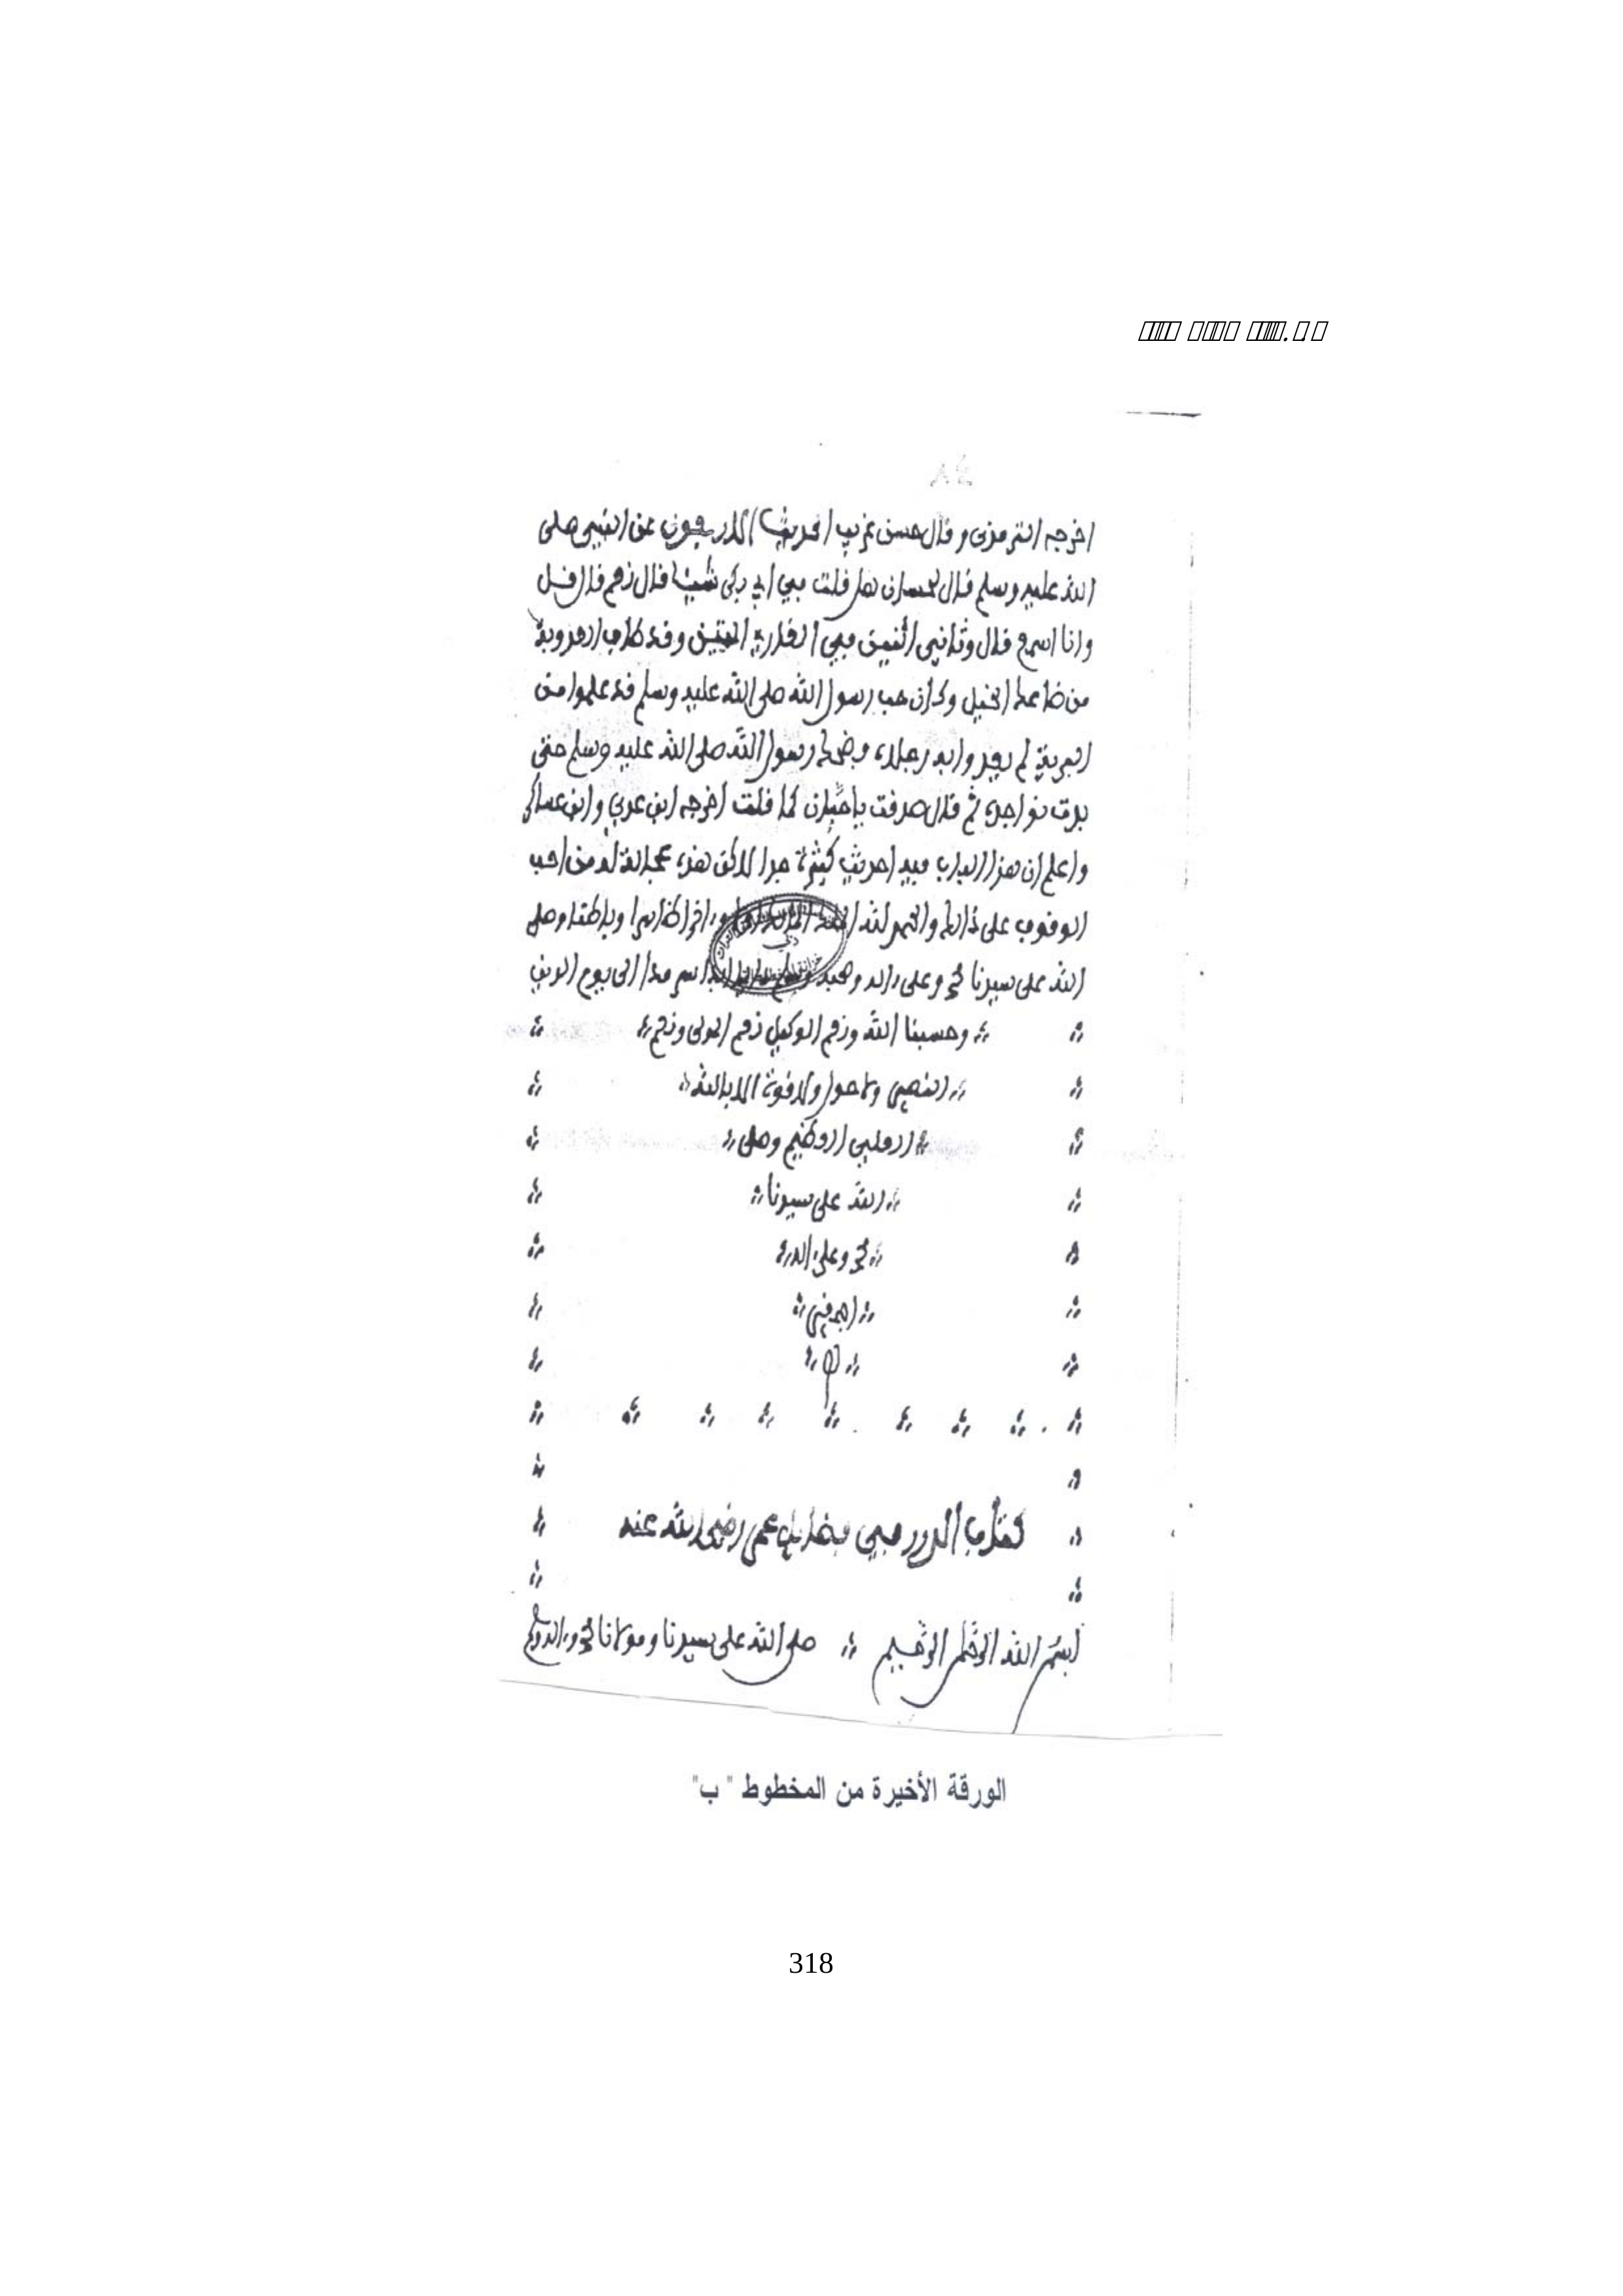 اخرجه الترمذى وقال حسن غريب الحديث الاربعون عن النبي صلى
الله عليه وسلم قال لحسان هل قلت في ابي بكر شيئا قال نعم قال قل
وانا اسمع قال وثاني اثنين في الغار المنيف وقد طاف العدو به
من صاعد الجبل وكان حب رسول الله صلى الله عليه وسلم قد علموا من
البرية لم يعدل به رجلا وضحك رسول الله صلى الله عليه وسلم حتى
بدت نواجده ثم قال صدقت ياحسان كما قلت اخرجه ابن عدي وابن عساكر
واعلم ان هذا الباب فيه احاديث كثيرة جدا لاكن هذه عجالة لمن احب
الوقوف على ذالك والحمد لله اولا واخرا ظاهرا وباطنا وصلى
الله على سيدنا محمد وعلى اله وصحبه وسلم الى يوم الدين
وحسبنا الله ونعم الوكيل نعم المولى ونعم
النصير ولا حول ولا قوة الا بالله
العلي العظيم وصلى
الله على سيدنا
محمد وعلى اله
اجمعين
كتاب الدرر في فضايل عمر رضي الله عنه
بسم الله الرحمن الرحيم صلى الله على سيدنا ومولانا محمد واله
الورقة الأخيرة من المخطوط " ب"
318